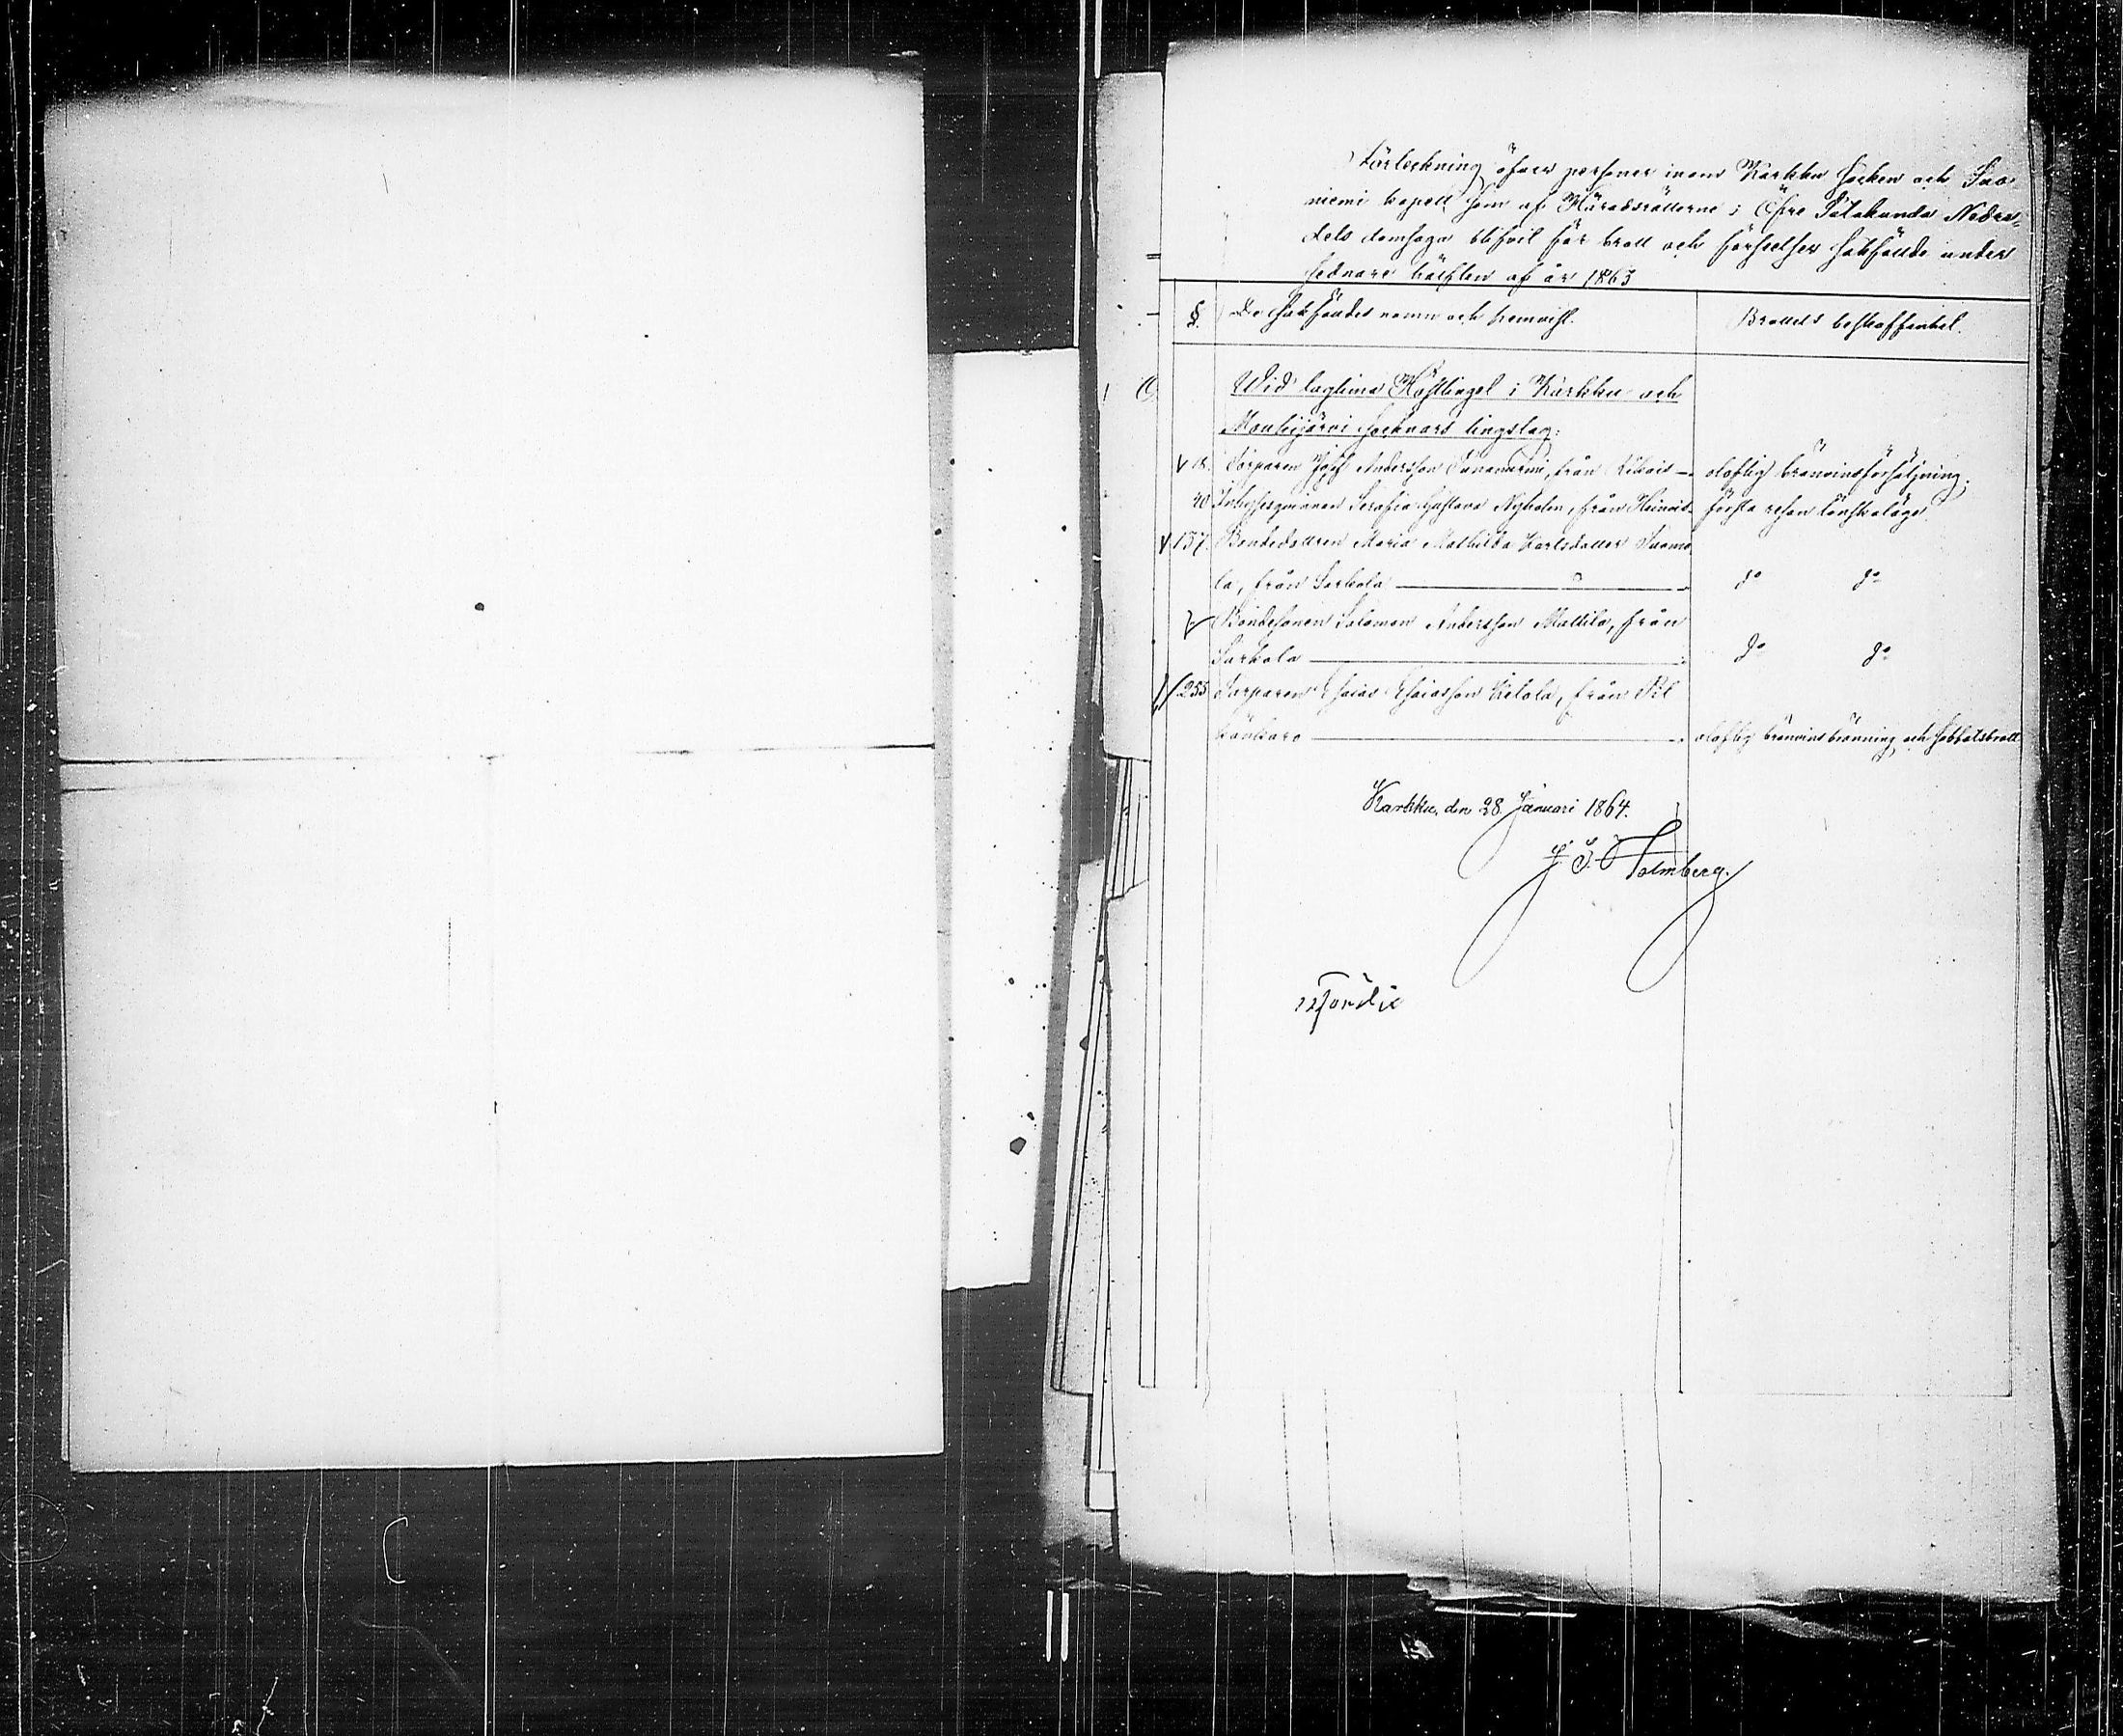 Förteckning öfver personer inom Karkku Socken och Suo-
niemi kapell som af Häradsrätterne i Öfre Satakunda Nedre-
dels domsaga blifvit för brott och förseelser sakfällde under
sednare hälften af år 1863
§. De sakfälldes namn och hemvist. Brottets beskaffenhet.
Wid lagtima Hösttinget i Karkku och
Mouhijärvi Socknars tingslag:
18. Torparen Josef Andersson från olaflig bränvinsförsäljning.
40 Serafia Gustava Nyholm, från första resan lönskaläge
137. Bondedottren Maria Mathilda Karlsdotter Suomo
la, från Sarkola do do
Bondesonen Salomon Andersson Mattila, från
Sarkola do do
255 Torparen Esaias Esaiasson Ketola, från
olaflig bränvinsbränning och sabbatsbrott
Karkku, den 28 Januari 1864.
Holmberg.